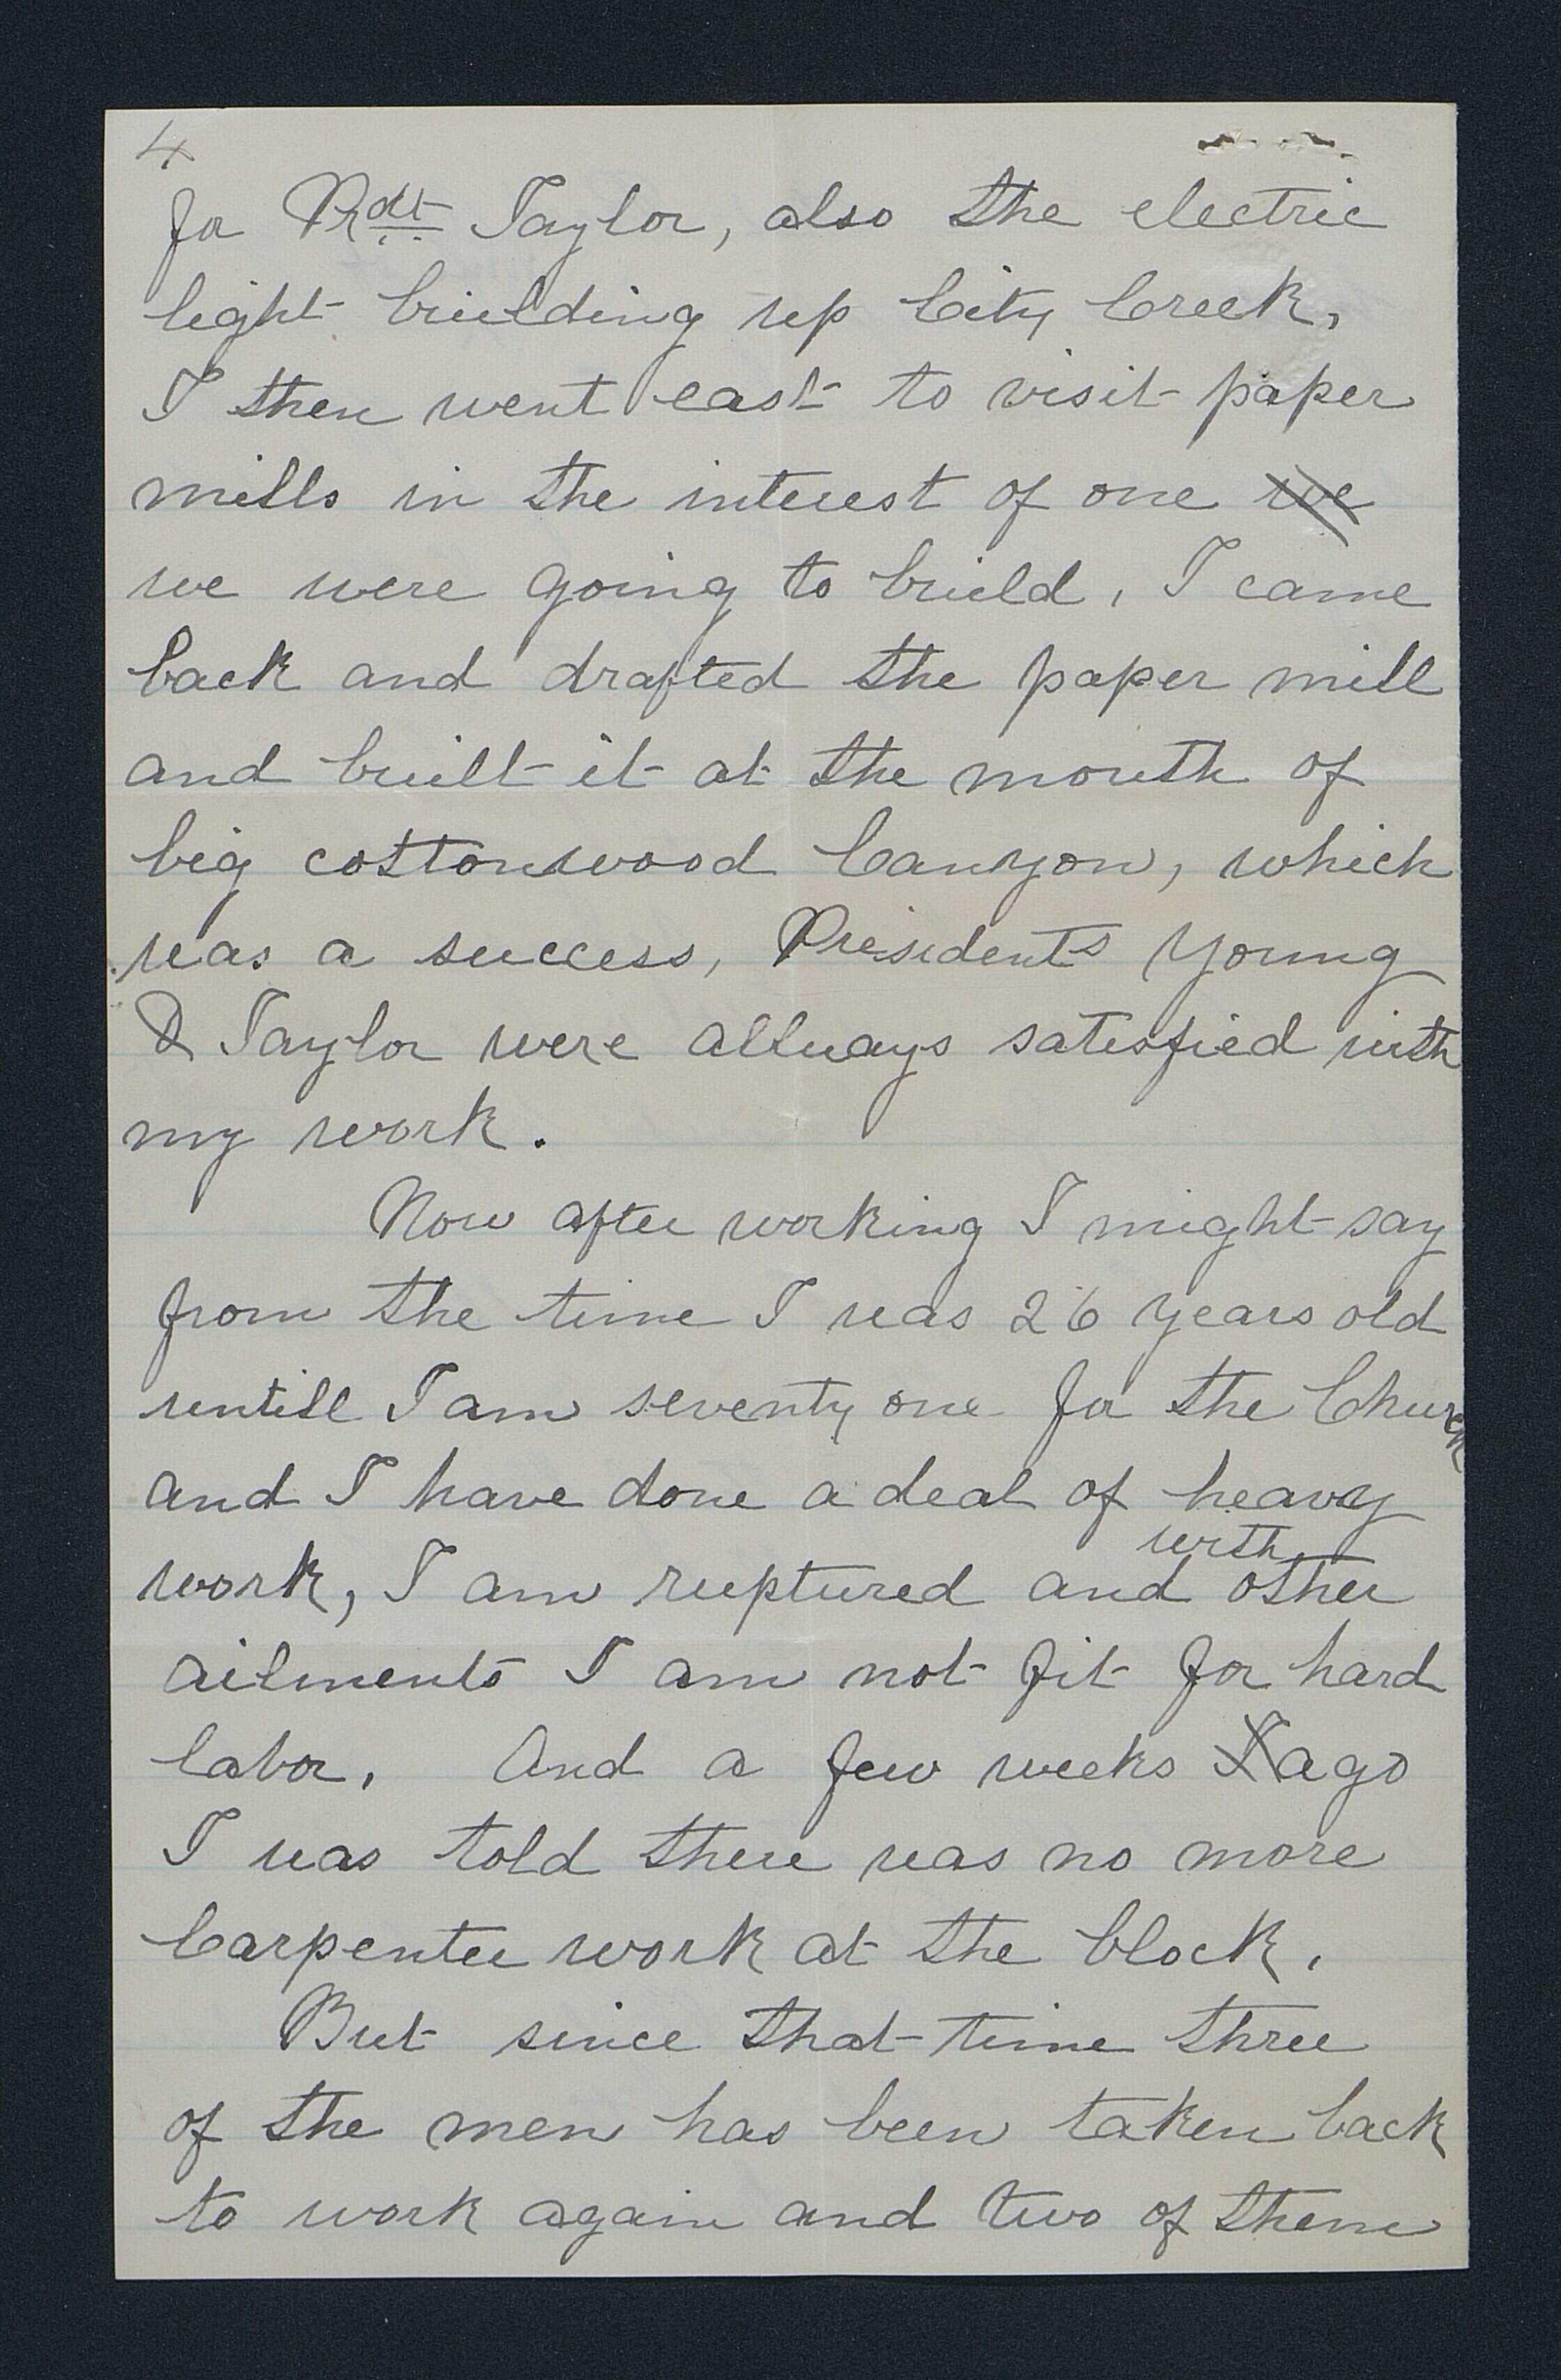 4
for Prdt Taylor, also the electric
light building up City Creek,
I then went east to visit paper
mills in the interest of one we
we were going to build, I came
back and drafted the paper mill
and built it at the mouth of
big cottonwood Canyon, which
was a success, Presidents Young
& Taylor were allways satisfied with
my work.
Now after working I might say
from the time I was 26 years old
untill I am seventy one for the Church
and I have done a deal of heavy
with
work, I am ruptured and other
ailments I am not fit for hard
labor, And a few weeks I ago
I was told there was no more
Carpenter work at the block,
But since that time three
of the men has been taken back
to work again and two of them